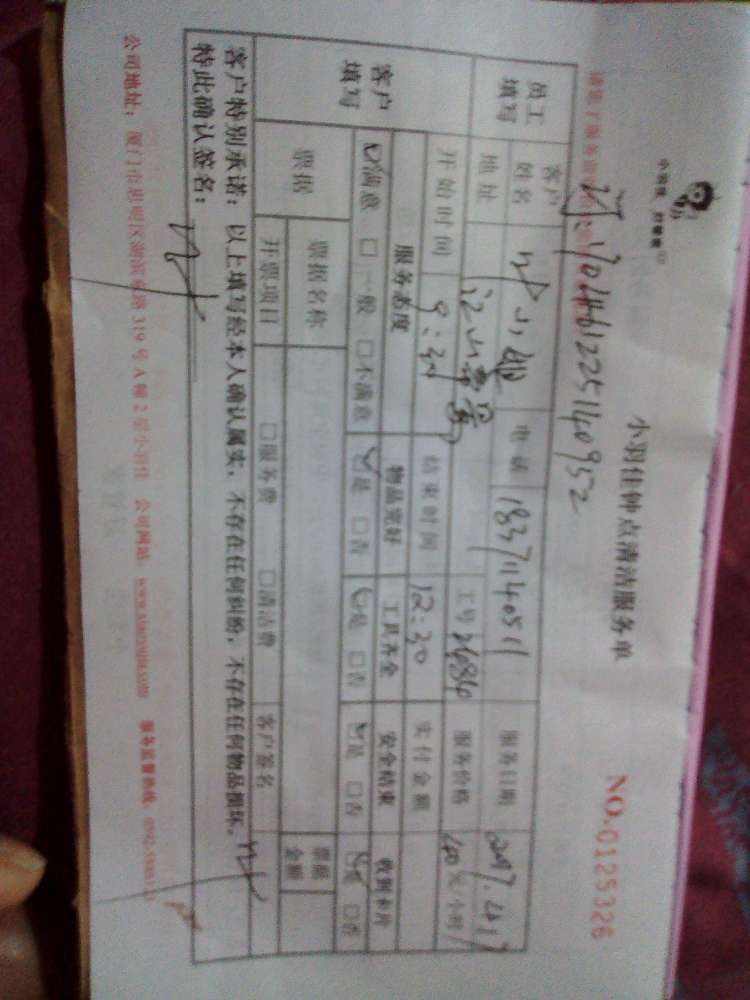 小羽佳钟点清洁服务单
NO.0125326
员工填写 客户姓名 叶小姐 电话 18371140511 服务日期
地址 工号 服务价格 元/小时
开始时间 9:30 结束时间 12:30 实付金额
客户填写 服务态度 物品完好 工具齐全 安全结束 收到卡片
☑满意 □一般 □不满意 ☑是 □否 ☑是 □否 ☑是 □否 ☑是 □否
票据 票据名称 票据金额
开票项目 □服务费 □清洁费 客户签名 叶
客户特别承诺：以上填写经本人确认属实，不存在任何纠纷，不存在任何物品损坏。
特此确认签名： 叶
公司地址：厦门市思明区湖滨南路319号A幢2层小羽佳 公司网站：www.xiaoyujia.com 服务监督热线：